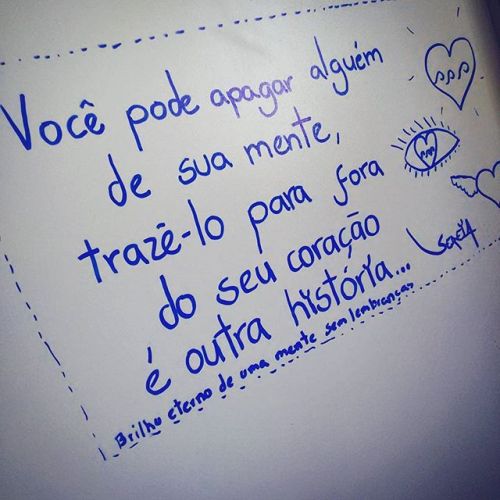 Você pode apagar alguém
de sua mente,
trazê-lo para fora
do seu coração
é outra história...
Brilho eterno de uma mente sem lembranças